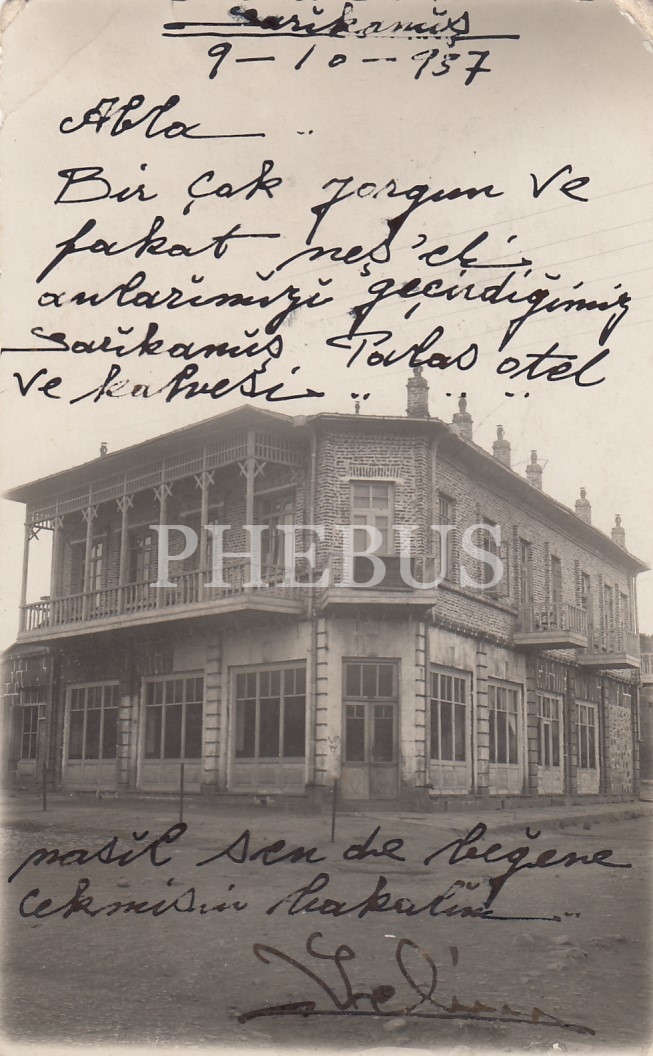 Sarıkamış
9-10-937
Abla ..
Bir çok yorgun ve
fakat neş'eli
anlarımızı geçirdiğimiz
Sarıkamış Palas otel
ve kahvesi .. . ..
PHEBUS
nasıl sen de beğene
cekmisin bakalım ..